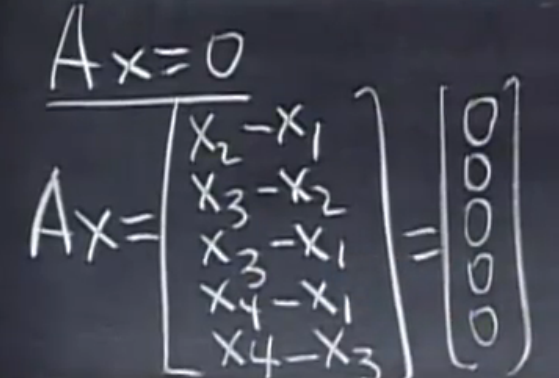 Ax=0
Ax=[x₂-x₁
x₃-x₂
x₃-x₁
x₄-x₁
x₄-x₃]=[0
0
0
0
0]